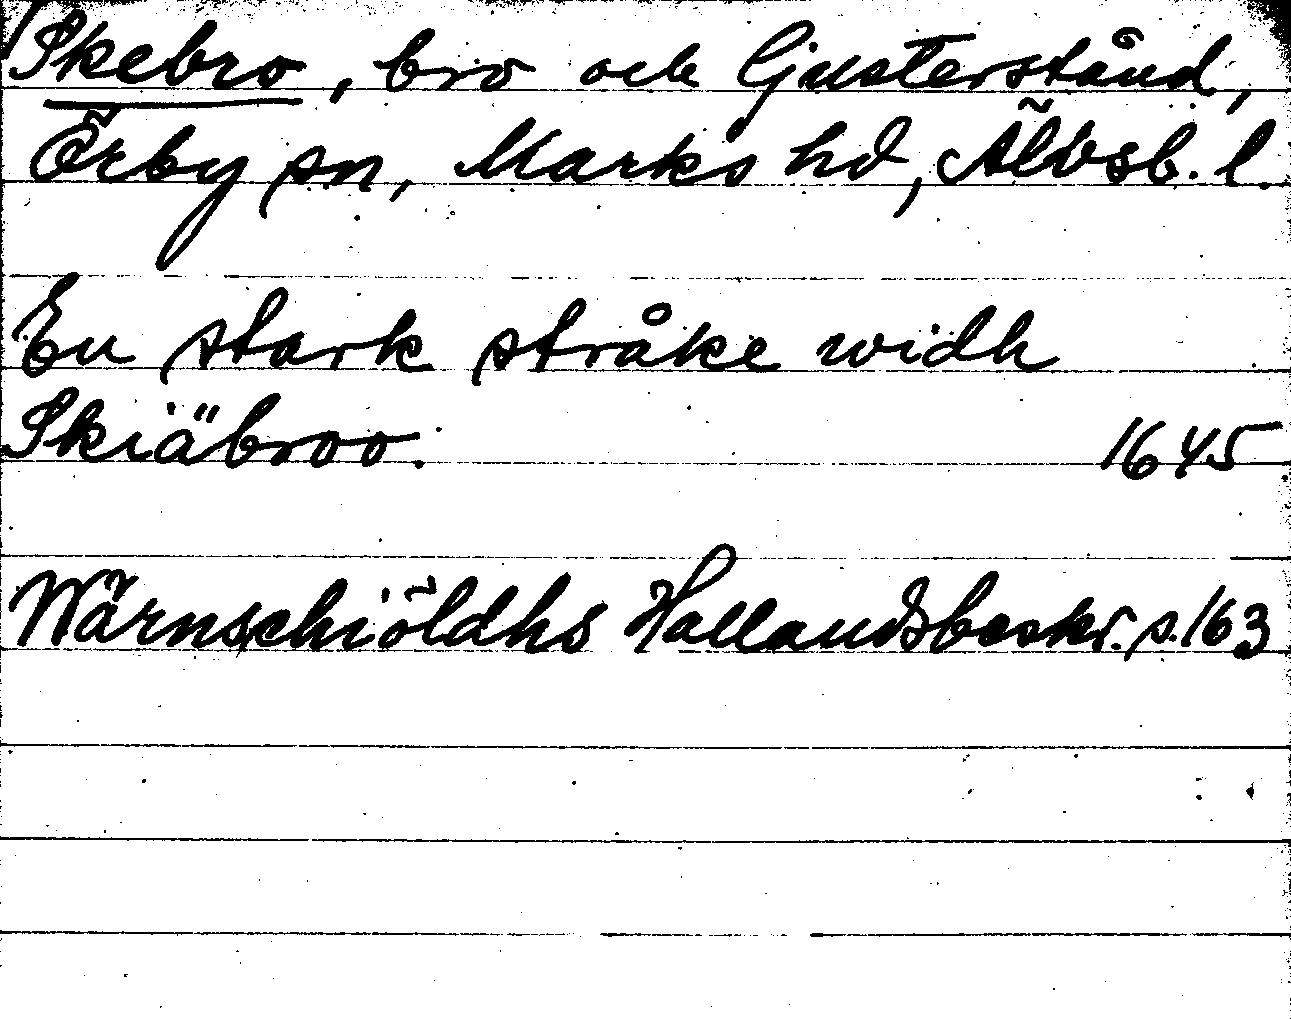 Skebro, bro och ljusterstånd,
Örby sn, Marks hd, Älvsb. l.
En stark stråke widh
Skiäbroo. 1645
Wärnschiöldhs Hallandsbeskr. s. 163